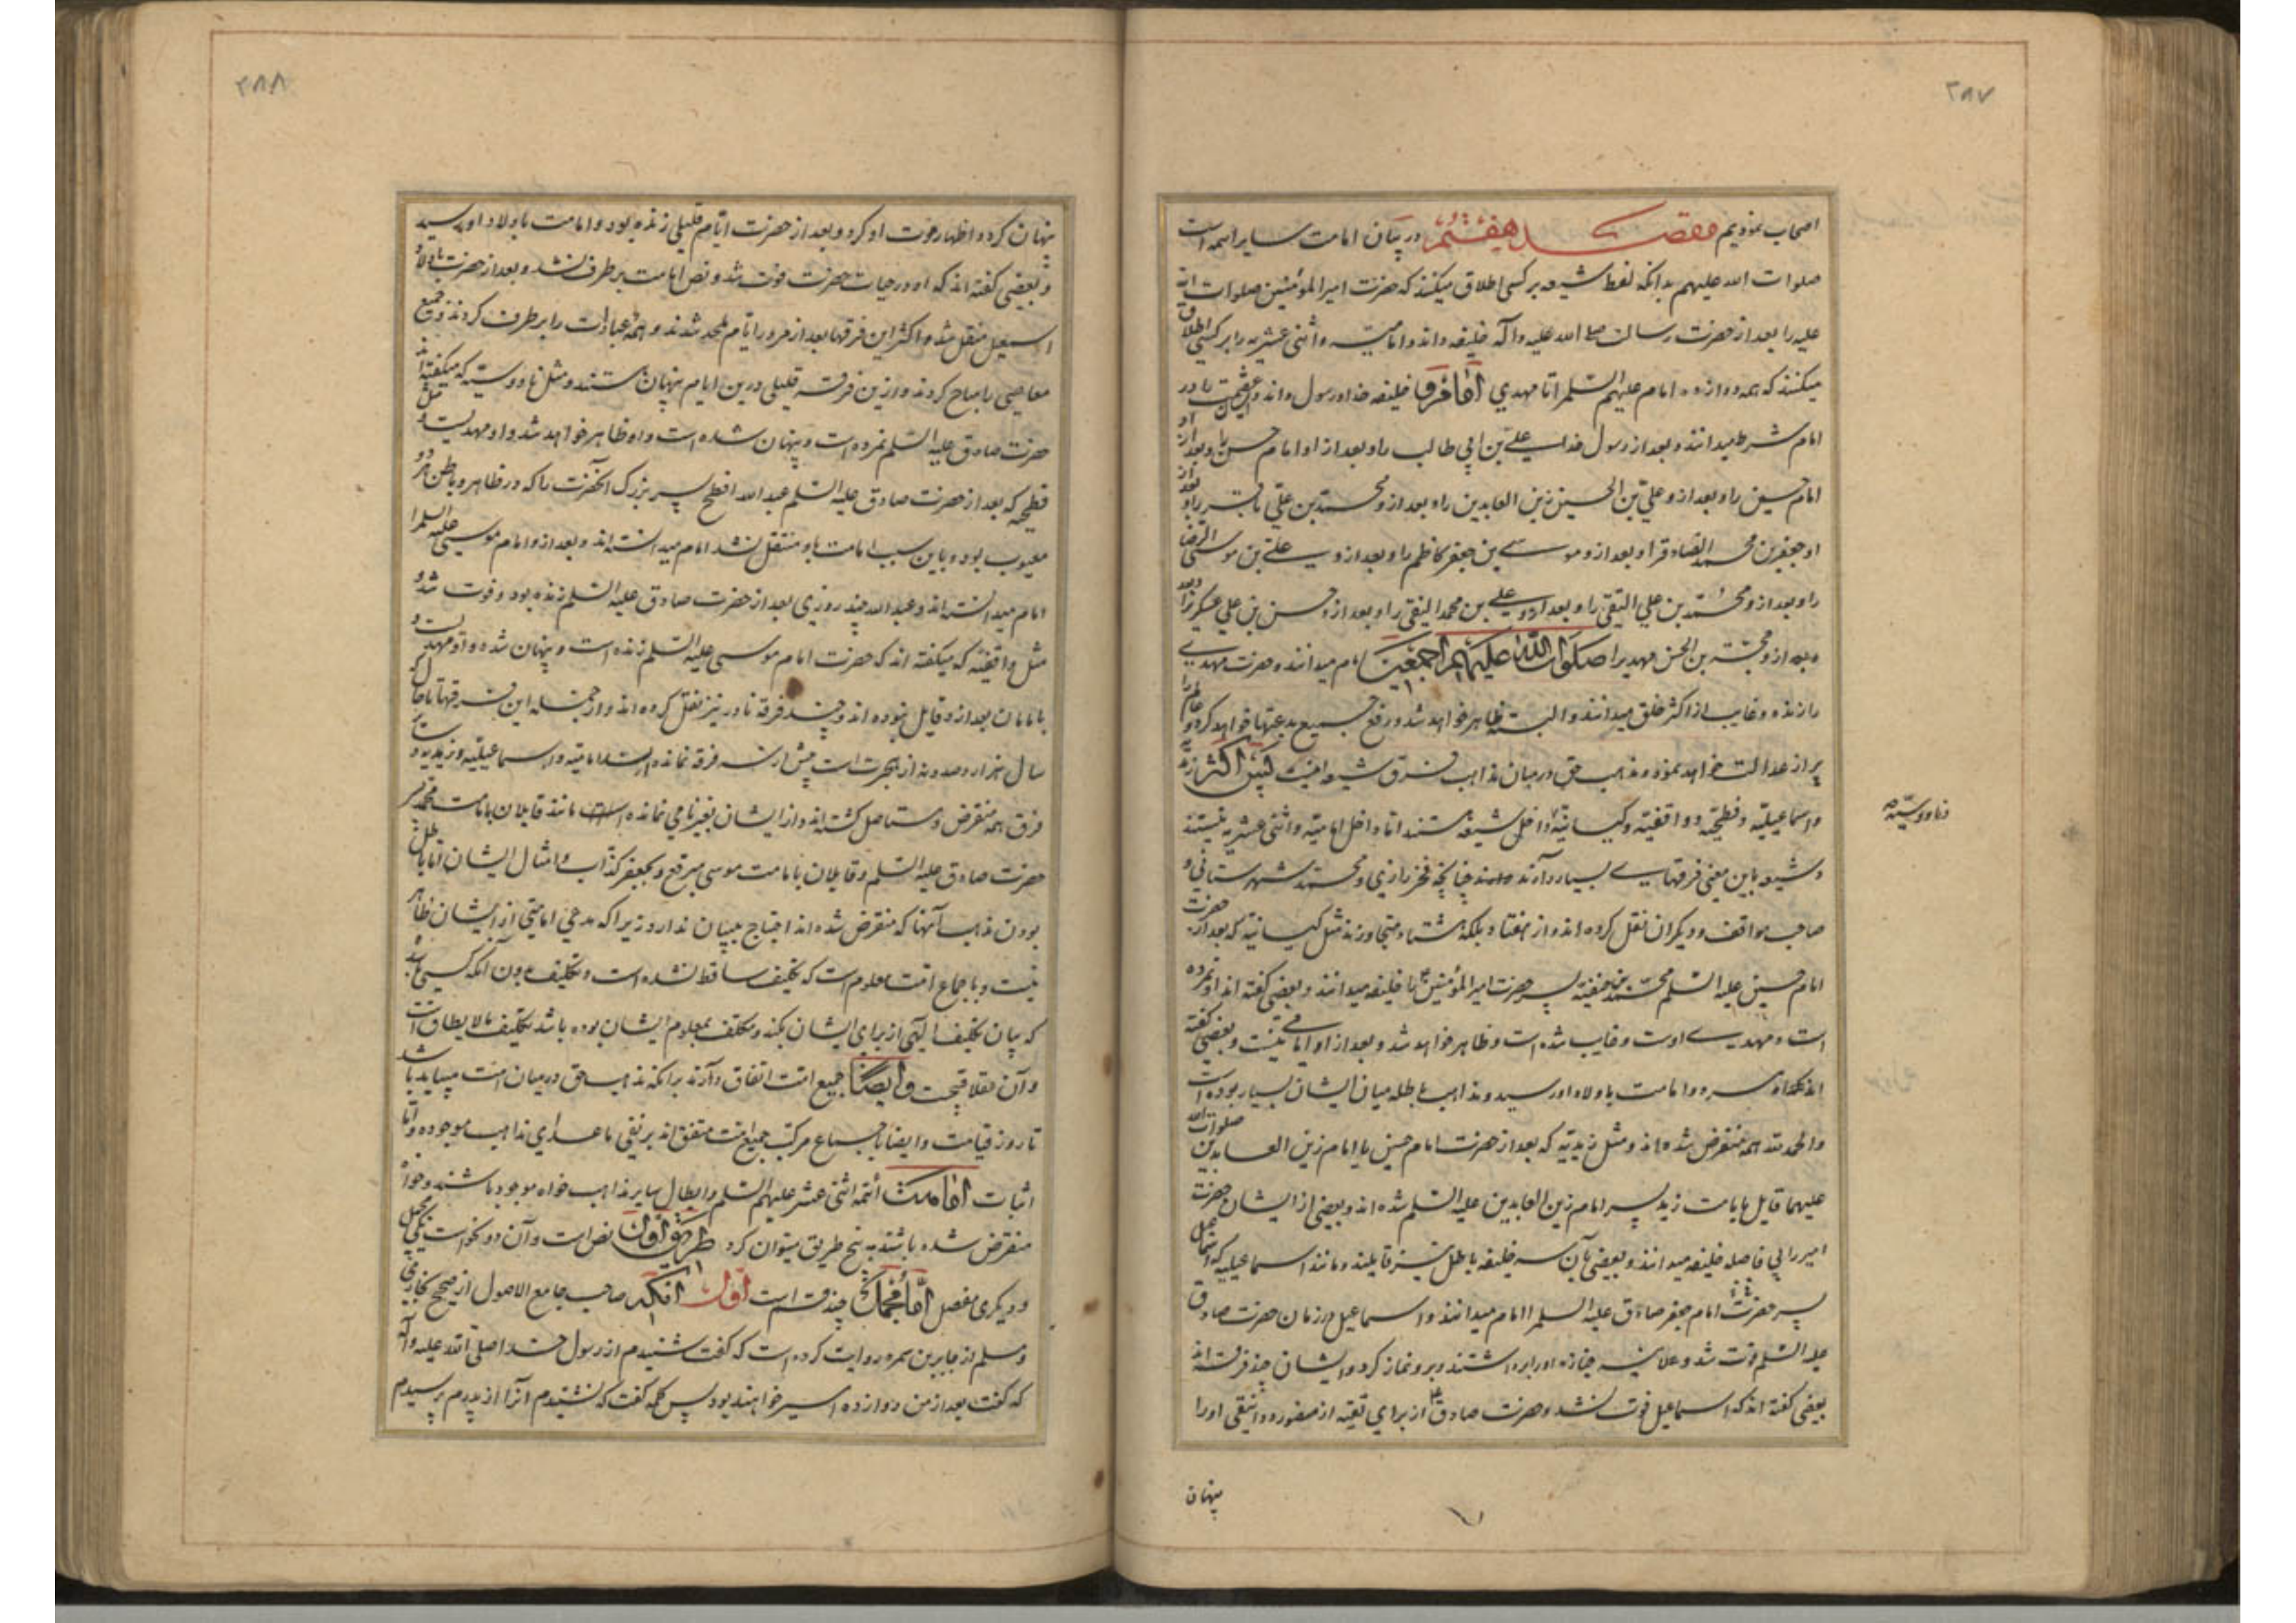 ۲۸۷
اصحاب نمودیم مقصد هفتم در بیان امامت سایر ائمه است
صلوات الله علیهم بدانکه لفظ شیعه بر کسی اطلاق میکنند که حضرت امیرالمؤمنین صلوات الله
علیه را بعد از حضرت رسالت صلی الله علیه وآله خلیفه داند و امامیه و اثنی عشریه را بر کسی اطلاق
میکنند که همه دوازده امام علیهم السلم را تا مهدی خلیفه خدا و رسول داند و عصمت را در
امام شرط میدانند و بعد از رسول خدا علی بن ابی طالب را و بعد از او امام حسن را و بعد از او
امام حسین را و بعد ازو علی بن الحسین زین العابدین را و بعد ازو محمد بن علی باقر را و بعد از
او جعفر بن محمد الصادق را و بعد ازو موسی بن جعفر کاظم را و بعد ازو علی بن موسی الرضا
را و بعد ازو محمد بن علی التقی را و بعد ازو علی بن محمد النقی را و بعد ازو حسن بن علی عسکری را
و بعد ازو حجة بن الحسن مهدیرا صلوات الله علیهم اجمعین امام میدانند و حضرت مهدی
را زنده و غایب از اکثر خلق میدانند و البته ظاهر خواهد شد و رفع جمیع بدعتها خواهد کرد و عالم را
پر از عدالت خواهد نمود و مذهب حق در میان مذاهب فرق شیعه اینست پس اکثر زیدیه
و اسماعیلیه و فطحیه و واقفیه و کیسانیه داخل شیعه هستند اما داخل امامیه و اثنی عشریه نیستند
وناووسیه
و شیعه باین معنی فرقهای بسیار دارند چنانچه فخر رازی و محمد شهرستانی و
صاحب مواقف و دیگران نقل کرده اند و از هفتاد بلکه هشتاد متجاوزند مثل کیسانیه که بعد از حضرت
امام حسین علیه السلم محمد بن حنفیه پسر حضرت امیرالمؤمنین را خلیفه میدانند و بعضی گفته اند او نمرده
است و مهدی اوست و غایب شده است و ظاهر خواهد شد و بعد از او امامی نیست و بعضی گفته
اند که او مرده و امامت باولاد او رسید و مذاهب باطله میان ایشان بسیار بوده است
والحمد لله همه منقرض شده اند و مثل زیدیه که بعد از حضرت امام حسین یا امام زین العابدین صلوات الله
علیهما قایل بامامت زید پسر امام زین العابدین علیه السلم شده اند و بعضی از ایشان حضرت
امیر را بی فاصله خلیفه میدانند و بعضی بآن سه خلیفه باطل نیز قایلند و مانند اسماعیلیه که اسمعیل
پسر حضرت امام جعفر صادق علیه السلم را امام میدانند و اسماعیل در زمان حضرت صادق
علیه السلم فوت شد و علانیه جنازه او را برداشتند و برو نماز کرد و ایشان چند فرقه اند
بعضی گفته اند که اسماعیل فوت نشد و حضرت صادق از برای تقیه از منصور دوانیقی او را
پنهان
۲۸۸
پنهان کرد و اظهار موت او کرد و بعد از حضرت ایام قلیلی زنده بود و امامت باولاد او رسید
و بعضی گفته اند که او در حیات حضرت فوت شد و نص امامت بر طرف نشد و بعد از حضرت باولاد
اسمعیل منتقل شد و اکثر این فرقها بعد از مرور ایام ملحد شدند و همه عبادات را بر طرف کردند و جمیع
معاصی را مباح کردند و ازین فرقه قلیلی درین ایام پنهان هستند و مثل ناووسیه که میگفته اند
حضرت صادق علیه السلم نمرده است و پنهان شده است و او ظاهر خواهد شد و او مهدیست و مثل
فطحیه که بعد از حضرت صادق علیه السلم عبد الله افطح پسر بزرگ آنحضرت را که در ظاهر و باطن هر دو
معیوب بود و باین سبب امامت باو منتقل نشد امام میدانسته اند و بعد ازو امام موسی علیه السلم را
امام میدانسته اند و عبد الله چند روزی بعد از حضرت صادق علیه السلم زنده بود و فوت شد و
مثل واقفیه که میگفته اند که حضرت امام موسی علیه السلم زنده است و پنهان شده و او مهدیست و
بامامان بعد ازو قایل نبوده اند و چند فرقه نادر نیز نقل کرده اند و از جمله این فرقها تا حال که
سال هزار و صد و نه از هجرت است بیش از سه فرقه نمانده است امامیه و اسماعیلیه و زیدیه و سایر
فرق همه منقرض و مستاصل گشته اند و از ایشان بغیر نامی نمانده است مانند قایلان بامامت محمد پسر
حضرت صادق علیه السلم و قایلان بامامت موسی مبرقع و بجعفر کذاب و امثال ایشان اما باطل
بودن مذهب آنها که منقرض شده اند احتیاج ببیان ندارد زیرا که مدعی امامتی از ایشان ظاهر
نیست و باجماع امت معلوم است که تکلیف ساقط نشده است و تکلیف بدون آنکه کسی باشد
که بیان تکلیف الهی از برای ایشان بکند و مکلف به معلوم ایشان بوده باشد تکلیف مالا یطاق است
و آن عقلا قبیحست وایضا جمیع امت اتفاق دارند برانکه مذهب حق در میان امت میباید باشد
تا روز قیامت و ایضا باجماع مرکب جمیع امت متفق اند بر نفی ماعدای مذاهب موجوده واما
اثبات امامت أئمه اثنی عشر علیهم السلم و ابطال سایر مذاهب خواه موجود باشند و خواه
منقرض شده باشند به پنج طریق میتوان کرد طریق اول نص است و آن دو نحو است یکی مجمل
و دیگری مفصل أما مجمل چند قسم است اول انکه صاحب جامع الاصول از صحیح بخاری
و مسلم از جابر بن سمره روایت کرده است که گفت شنیدم از رسول خدا صلی الله علیه وآله
که گفت بعد از من دوازده امیر خواهند بود پس کلمه گفت که نشنیدم آنرا از پدرم پرسیدم